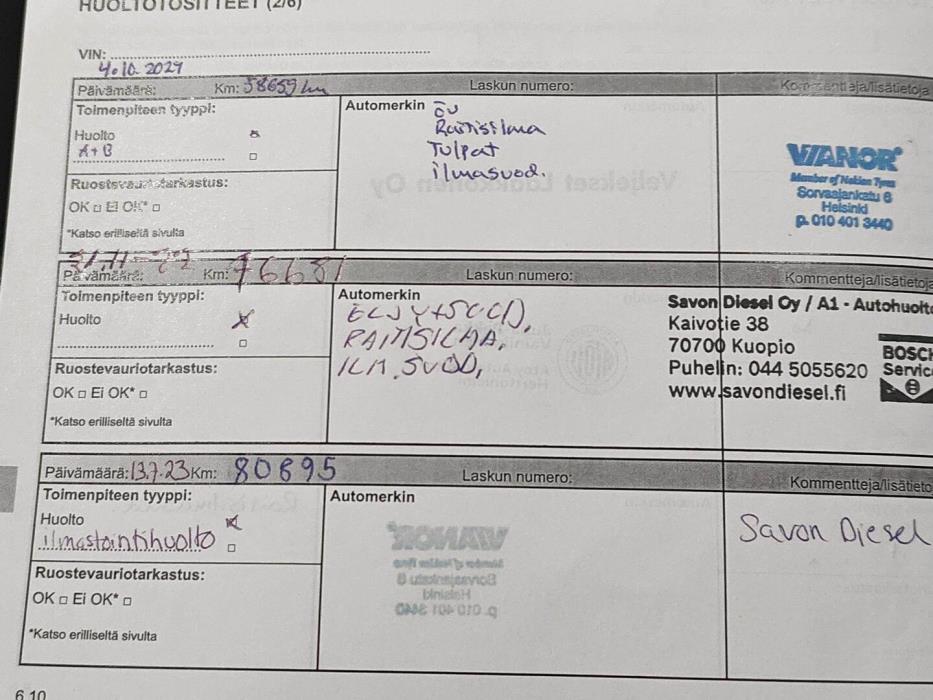 HUOLTOTOSITTEET (2/6)
VIN:
4.10.2021
Päivämäärä: Km: 58659 km Laskun numero: Kommentteja/lisätietoja
Toimenpiteen tyyppi:
Huolto
A+B
Ruostevauriotarkastus:
OK Ei OK*
*Katso erilliseltä sivulta
Automerkin ÖV
Raitisilma
Tulpat
ilmasuod.
VIANOR
Member of Nokian Tyres
Sorvaajankatu 6
Helsinki
p. 010 401 3440
Päivämäärä: Km: 76681 Laskun numero: Kommentteja/lisätietoja
Toimenpiteen tyyppi:
Huolto
Ruostevauriotarkastus:
OK Ei OK*
*Katso erilliseltä sivulta
Automerkin
RAITISILMA,
ILM.SUOD,
Savon Diesel Oy / A1 - Autohuolto
Kaivotie 38
70700 Kuopio
Puhelin: 044 5055620
www.savondiesel.fi
BOSCH
Service
Päivämäärä: 13.7.23 Km: 80895 Laskun numero: Kommentteja/lisätieto
Toimenpiteen tyyppi:
Huolto
ilmastointihuolto
Ruostevauriotarkastus:
OK Ei OK*
*Katso erilliseltä sivulta
Automerkin
Savon Diesel
6.10